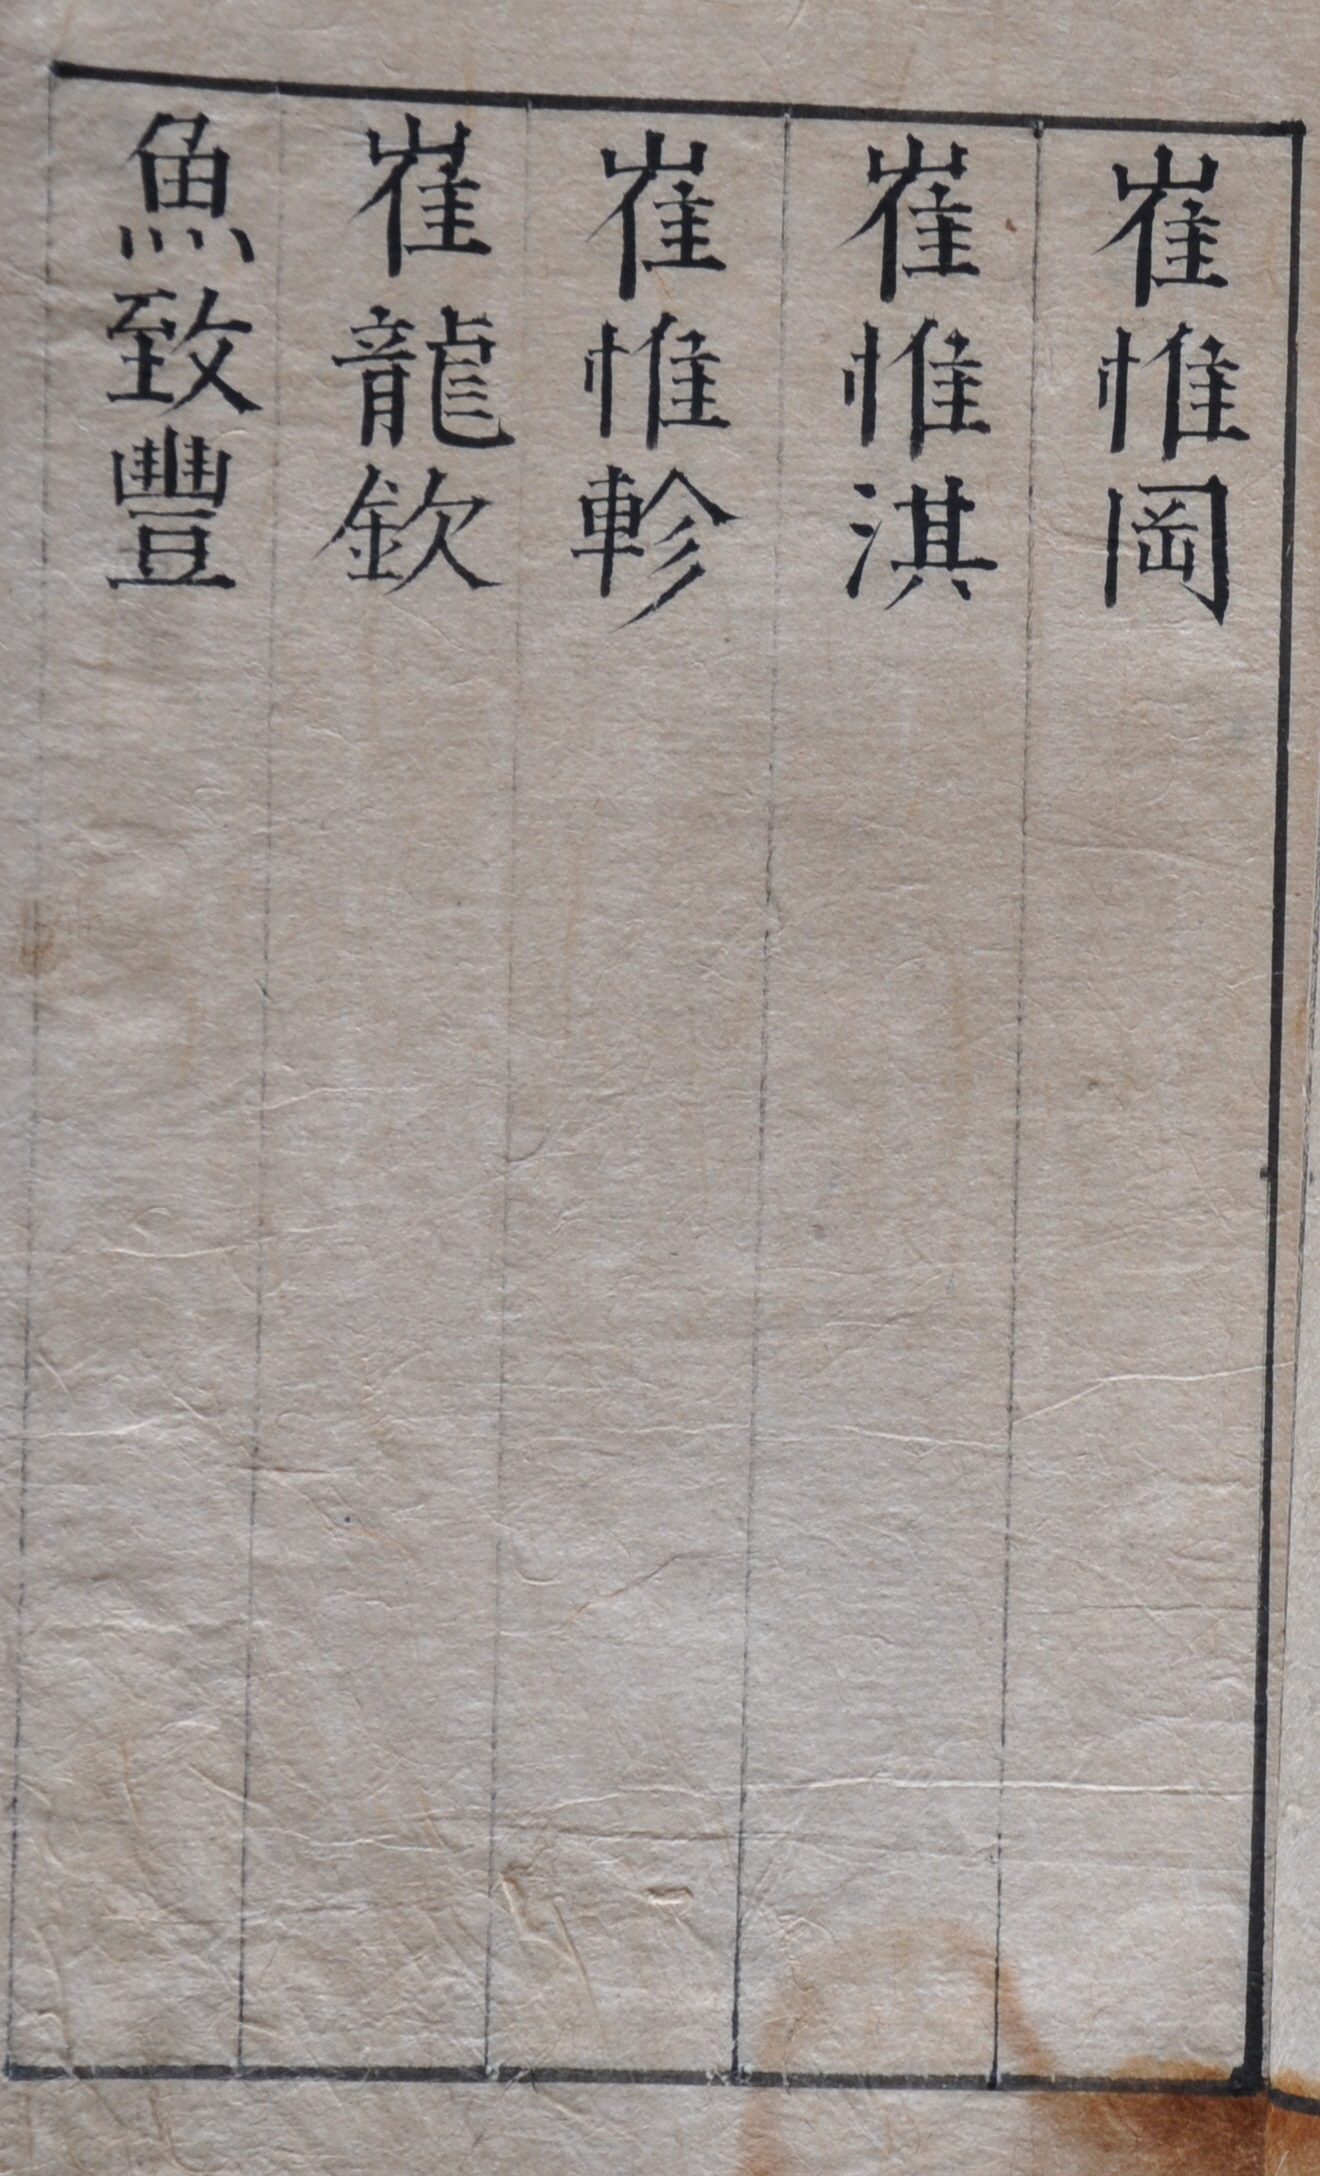 崔惟岡
崔惟淇
崔惟軫
崔龍欽
魚致豐